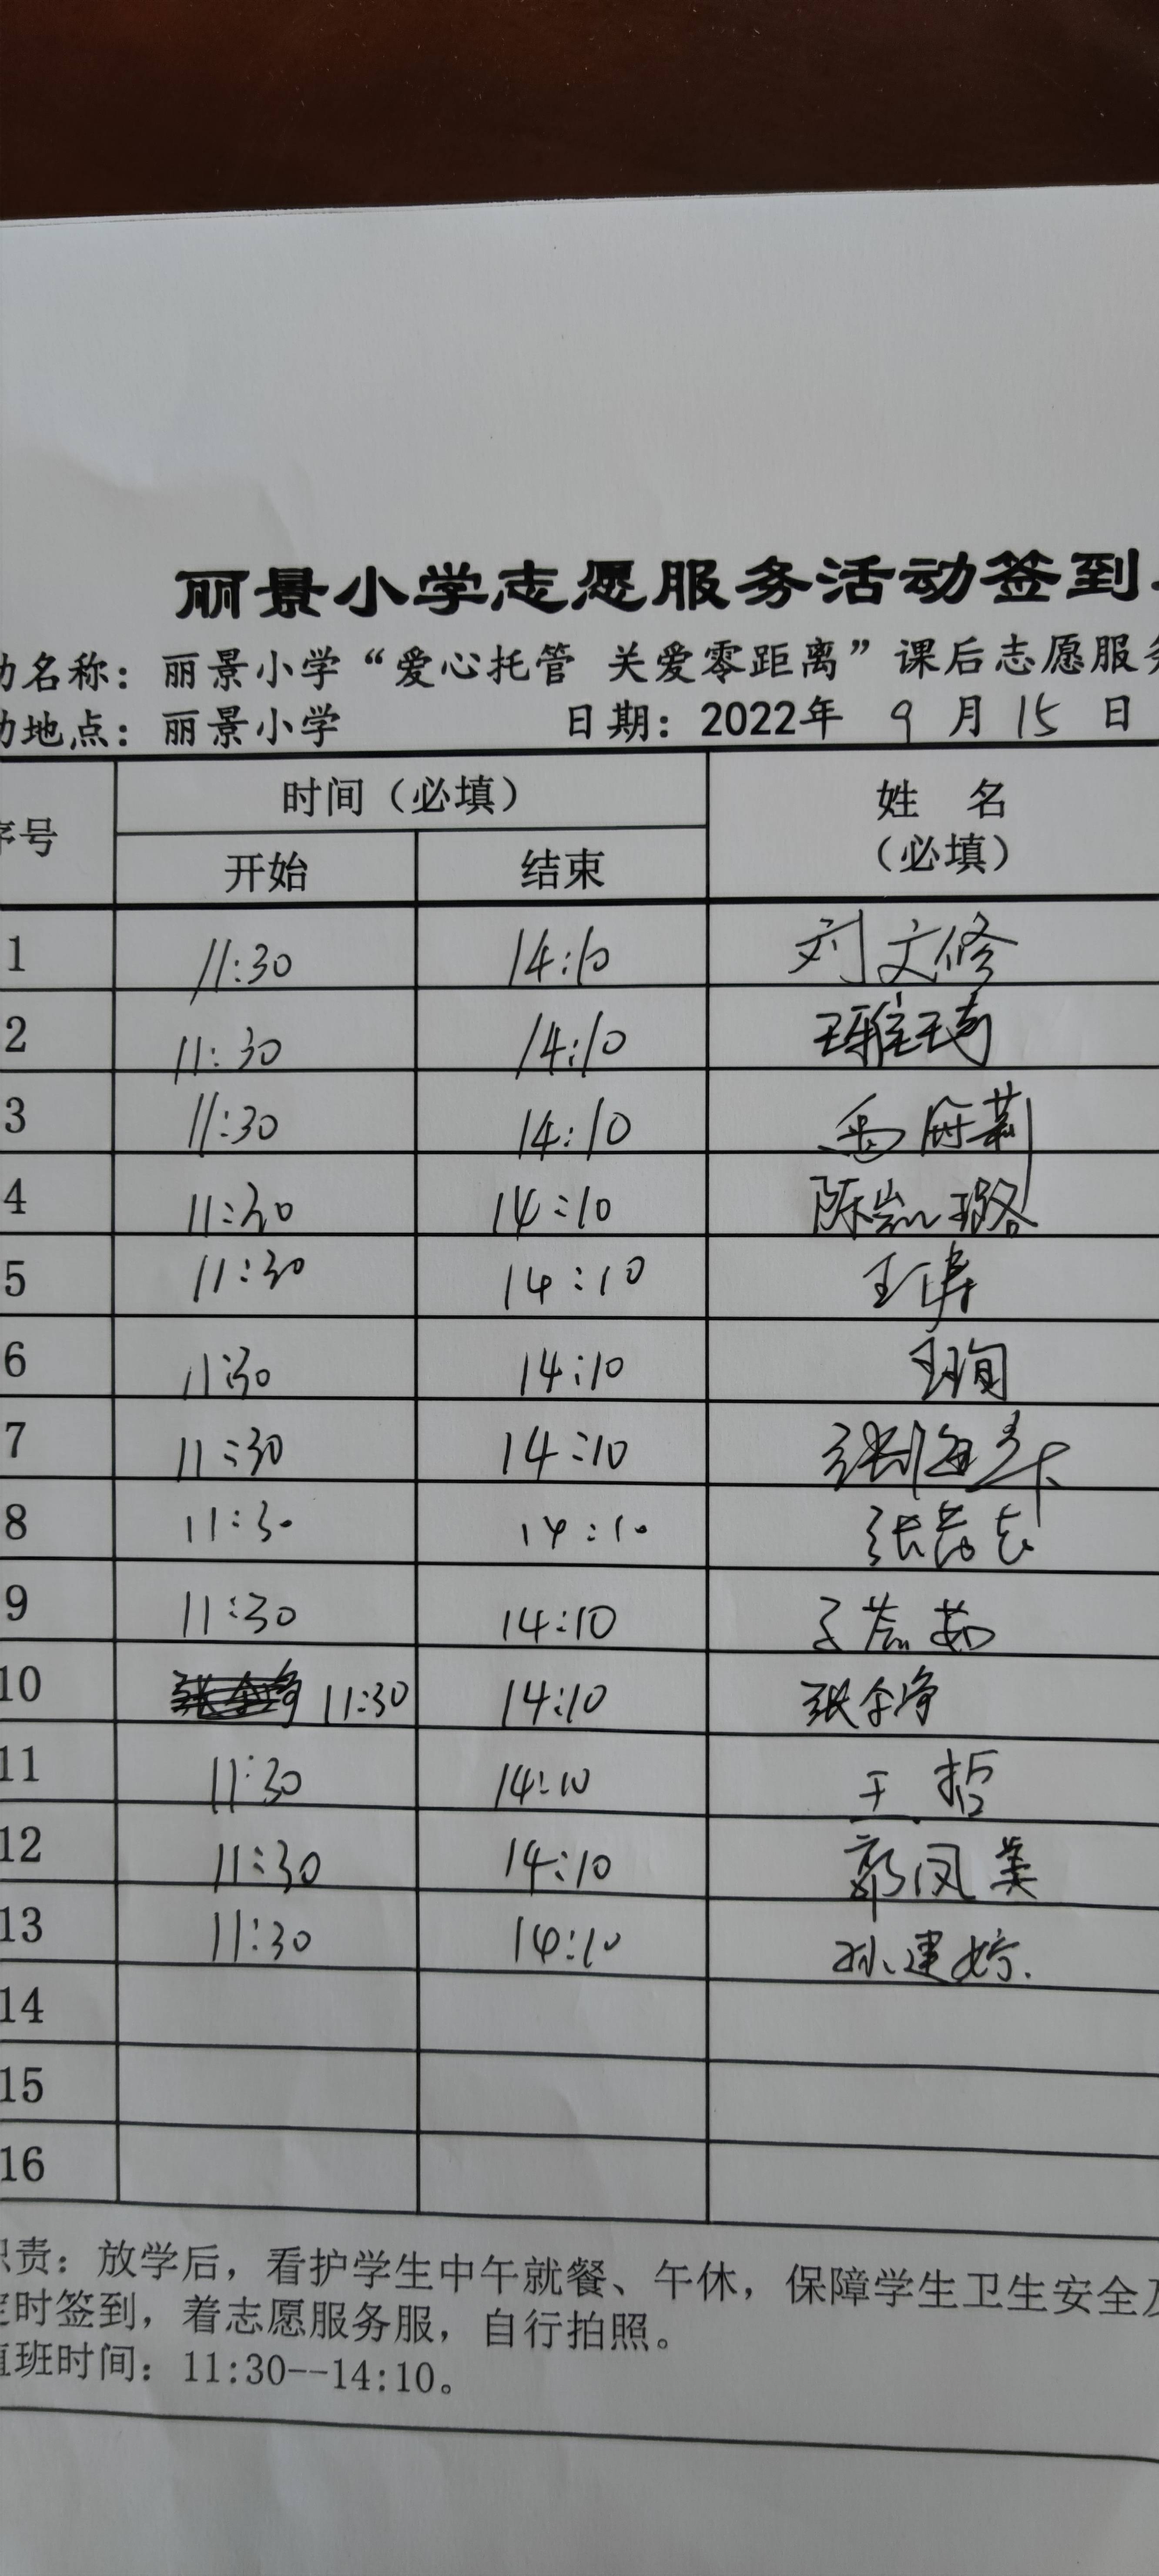 丽景小学志愿服务活动签到
动名称：丽景小学“爱心托管 关爱零距离”课后志愿服务
动地点：丽景小学 日期：2022年 9 月 15 日
序号 时间（必填） 姓 名
（必填）
开始 结束
1 11:30 14:10 刘文修
2 11:30 14:10 王雅琦
3 11:30 14:10
4 11:30 14:10 陈岚璐
5 11:30 14:10 王伟
6 11:30 14:10 王珣
7 11:30 14:10 张海
8 11:30 14:10 张
9 11:30 14:10
10 11:30 14:10 张金净
11 11:30 14:10 王哲
12 11:30 14:10 郭凤美
13 11:30 14:10 孙建婷
14
15
16
职责：放学后，看护学生中午就餐、午休，保障学生卫生安全及
定时签到，着志愿服务服，自行拍照。
值班时间：11:30--14:10。